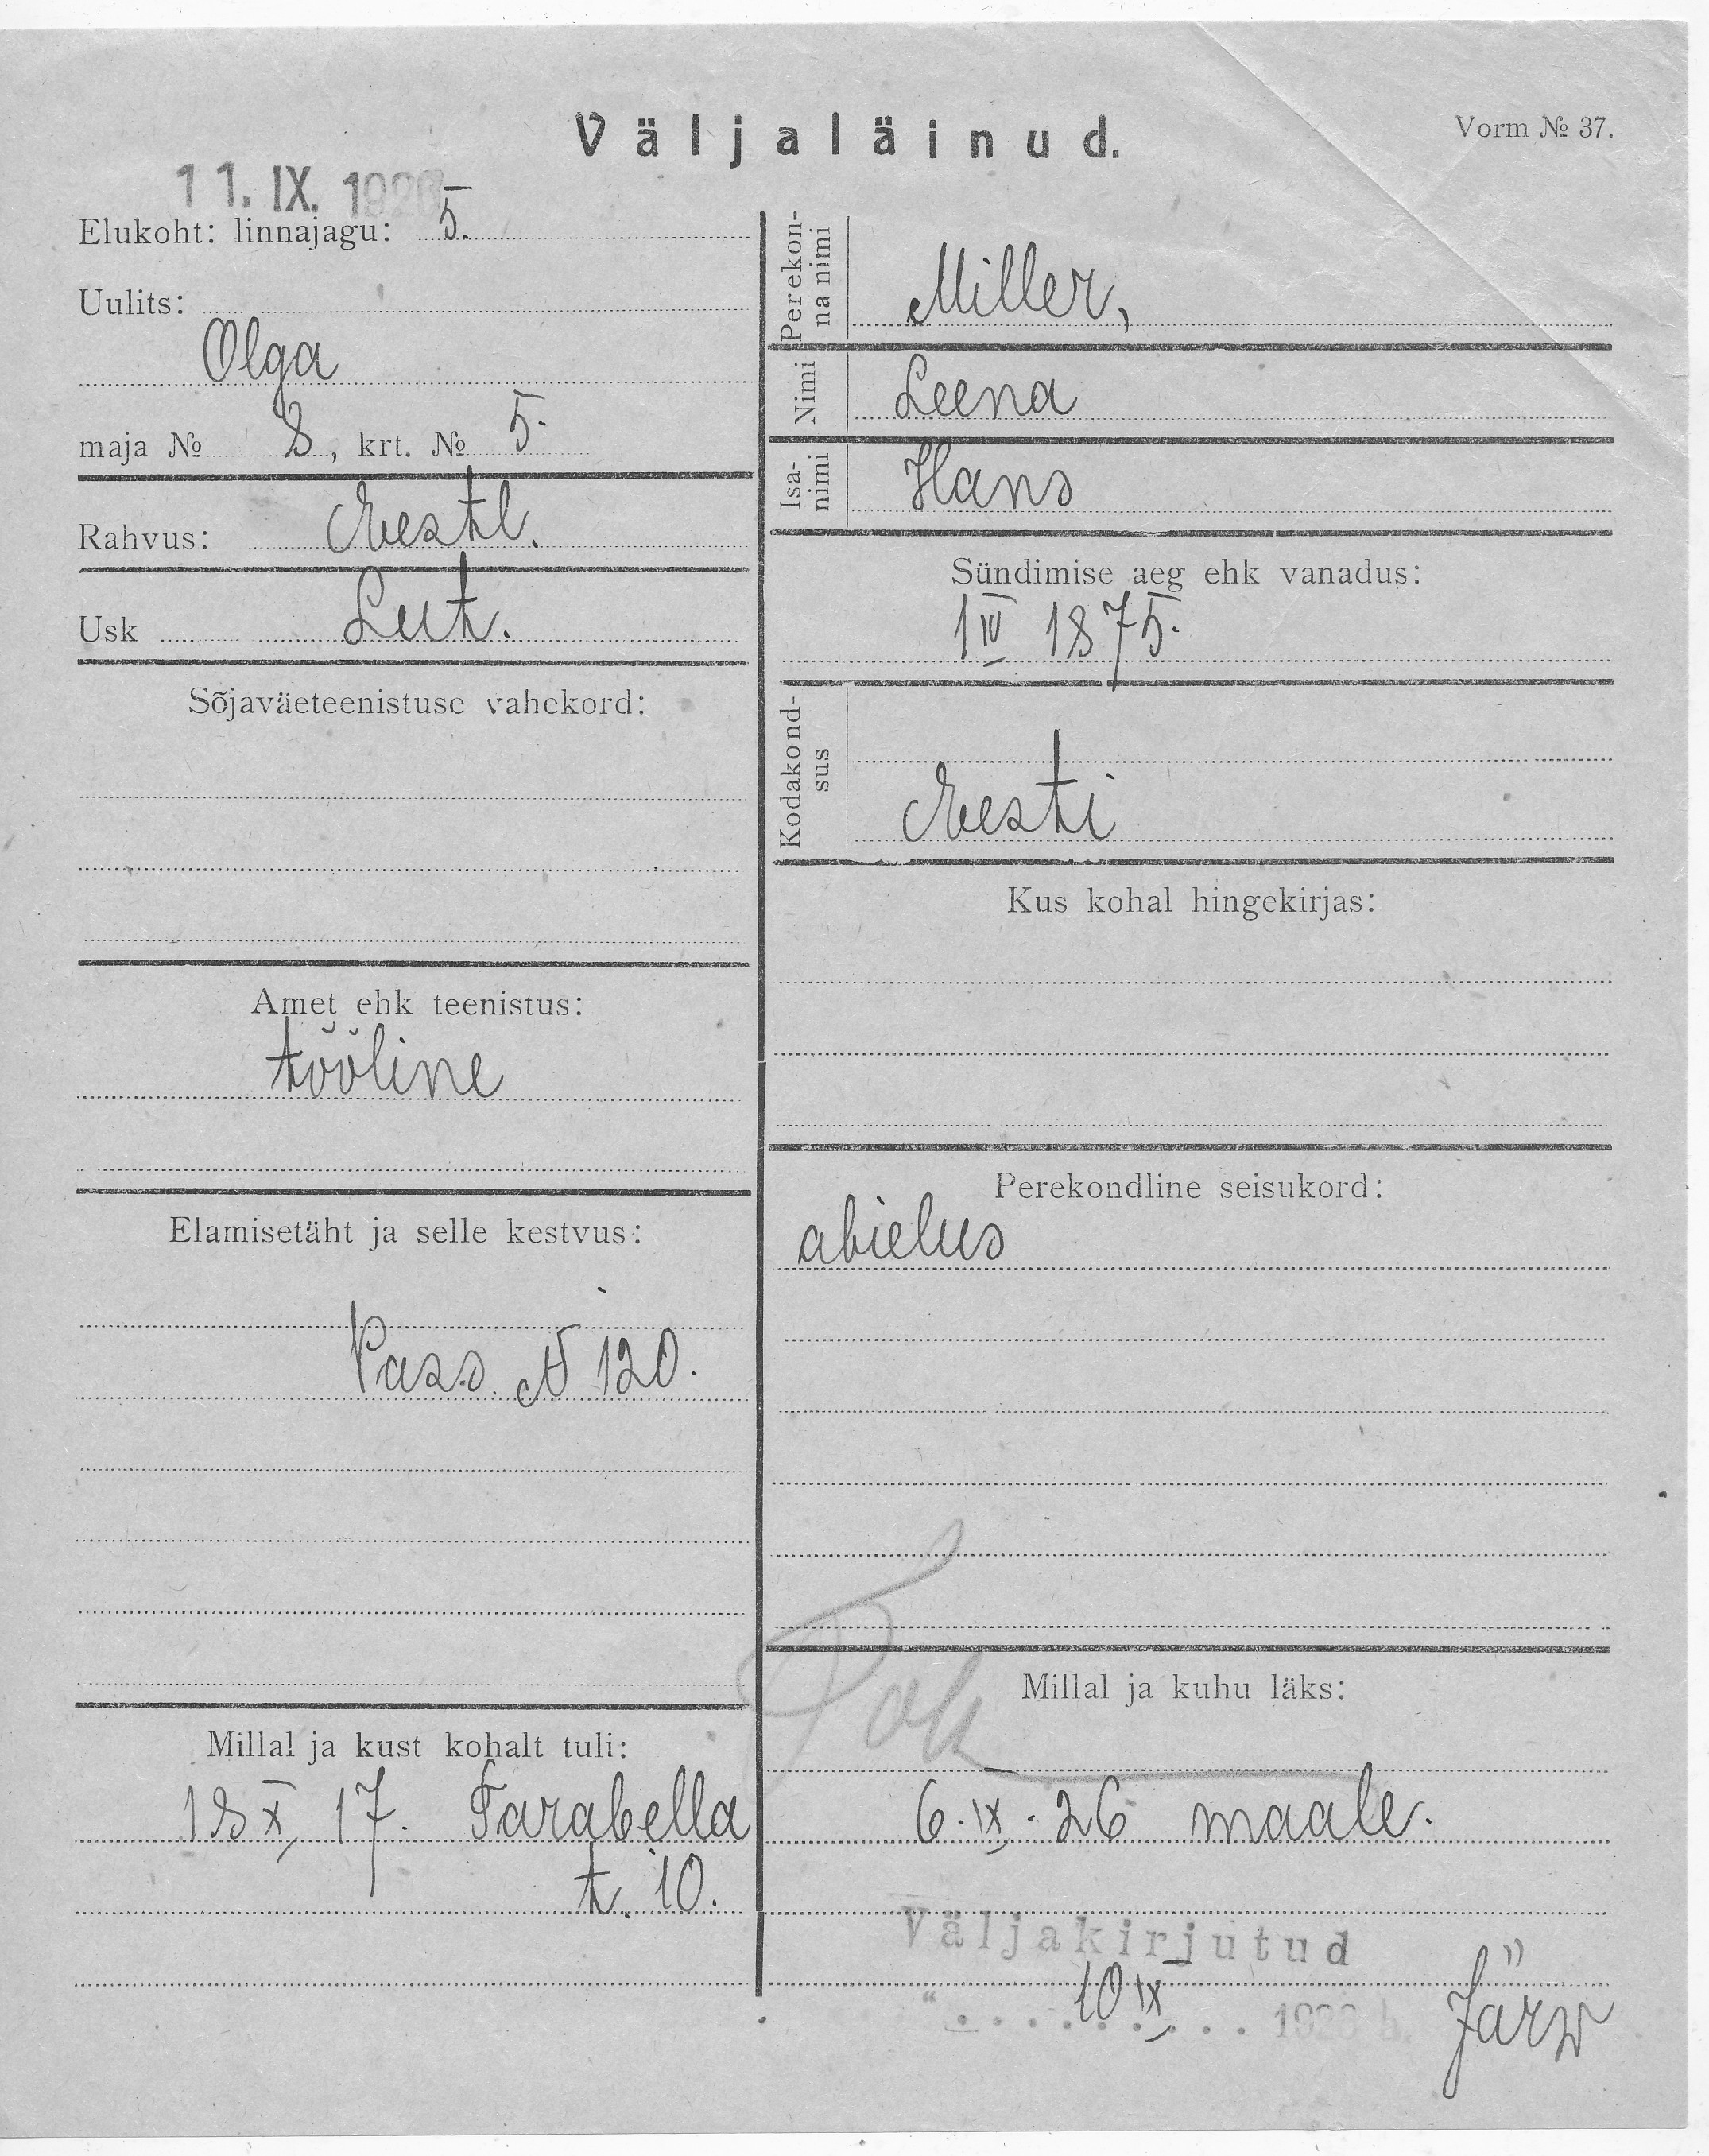 Väljaläinud.
Vorm № 37.
11. IX. 1926
Elukoht: linnajagu: 5.
Uulits:
Olga
maja № 8, krt. № 5.
Rahvus: Eestl.
Usk Lut.
Sõjaväeteenistuse vahekord:
Amet ehk teenistus:
tööline
Elamisetäht ja selle kestvus:
Pass. № 120.
Millal ja kust kohalt tuli:
18 X 17. Tarabella
t. 10.
Perekon-
na nimi
Miller,
Nimi
Leena
Isa-
nimi
Hans
Sündimise aeg ehk vanadus:
1 IV 1875.
Kodakond-
sus
Eesti
Kus kohal hingekirjas:
Perekondline seisukord:
abielus
Millal ja kuhu läks:
6. IX. 26 maale.
Väljakirjutud
"10 IX 1926 h.
Järw